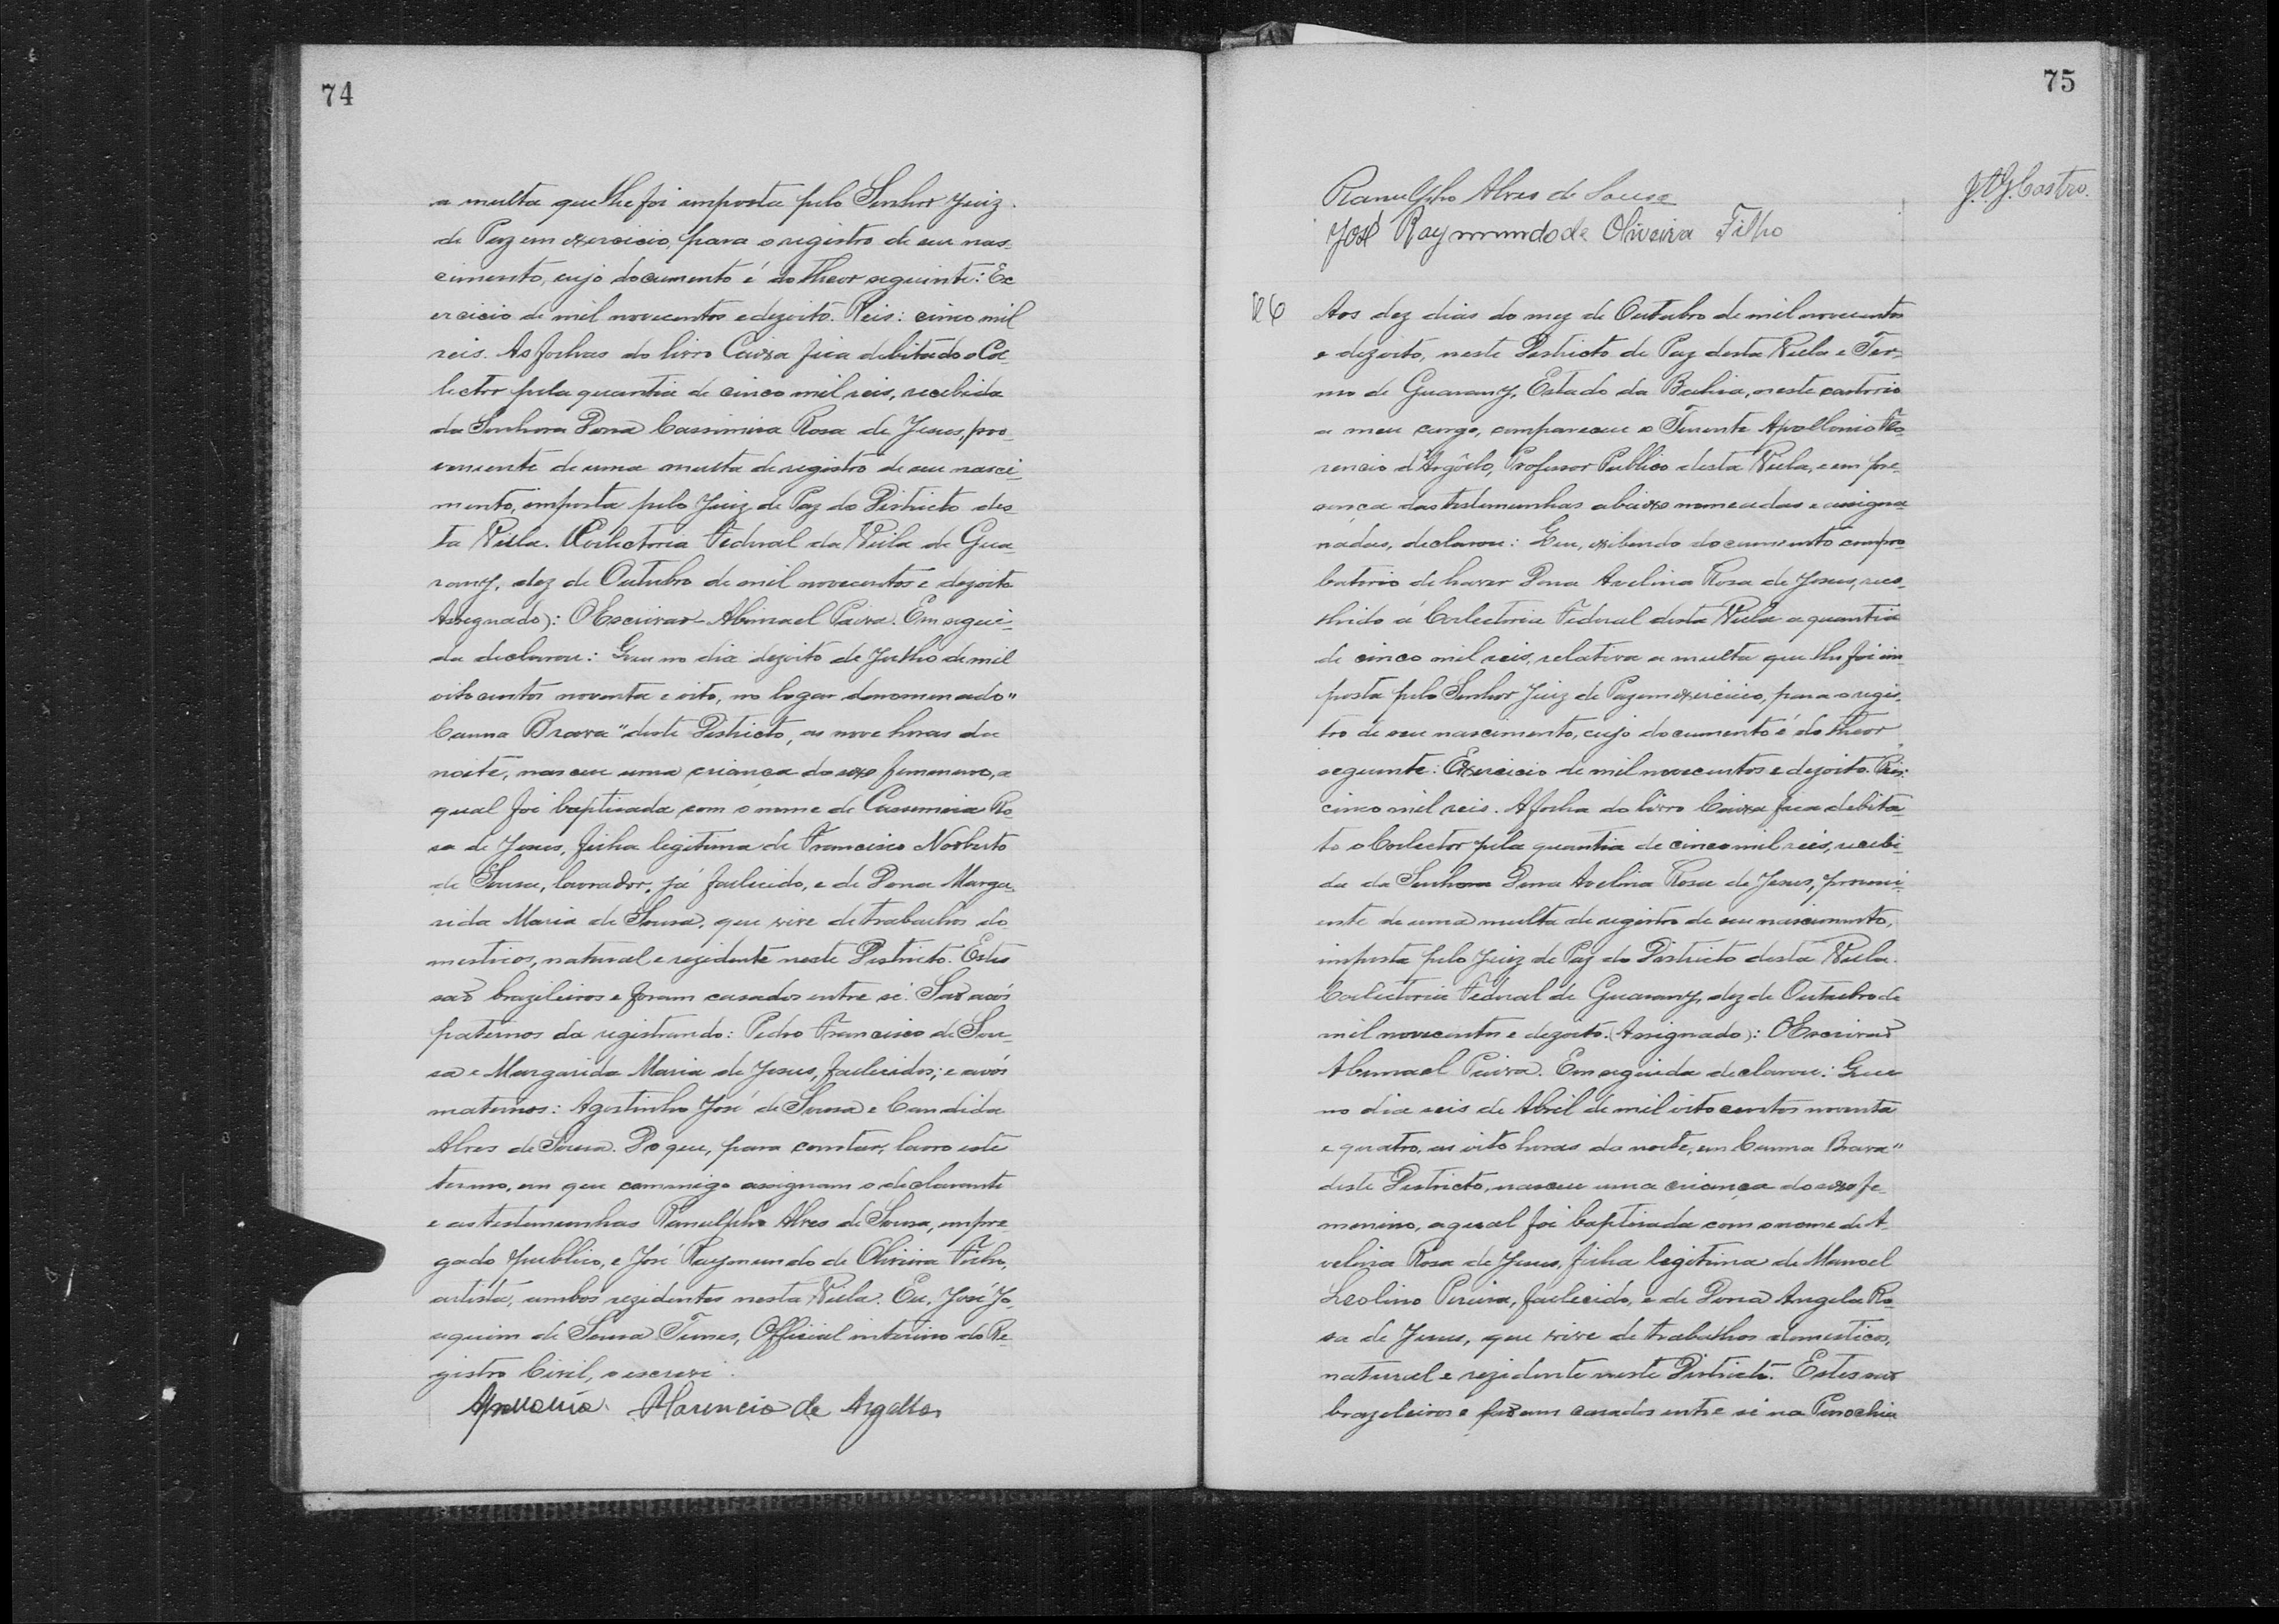 74
a multa que lhe foi imposta pelo Senhor Juiz
de Paz em exercicio, para o registro de seu nas-
cimento, cujo documento é do theor seguinte: Ex
ercicio de mil novecentos e dezoito. Reis: cinco mil
reis. As folhas do livro Caixa fica debitado o Col
lector pela quantia de cinco mil reis, recebida
da Senhora Dona Cassimira Rosa de Jesus, pro-
veniente de uma multa de registro de seu nasci-
mento, imposta pelo Juiz de Paz do Districto des-
ta Villa. Collectoria Federal da Villa de Gua-
rany, dez de Outubro de mil novecentos e dezoito
Assignado): O Escrivão Abimael Paiva. Em segui-
da declarou: Que no dia dezoito de Julho de mil
oitocentos noventa e oito, no logar denomenado "
Canna Brava" deste Districto, as nove horas da
noite, nasceu uma criança do sexo femenino, a
qual foi baptisada com o nome de Cassemira Ro
sa de Jesus, filha legitima de Francisco Norberto
de Sousa, lavrador, já fallecido, e de Dona Marga-
rida Maria de Sousa, que vive de trabalhos do-
mesticos, natural e rezidente neste Districto. Estes
são brazileiros e foram casados entre si. São avós
paternos da registrando: Pedro Francisco de Sou-
sa e Margarida Maria de Jesus, fallecidos; e avós
maternos: Agostinho José de Sousa e Candida
Alves de Sousa. Do que, para constar, lavro este
termo, em que commigo assignam o declarante
e as testemunhas Ranulpho Alves de Sousa, empre
gado publico, e José Raymundo de Oliveira Filho,
artista, ambos rezidentes nesta Villa. Eu, José Jo-
aquim de Sousa Tunes, Official interino do Re-
gistro Civil, o escrevi.
Apollonio Florencio de Argollo
75
Ranulpho Alves de Sousa
José Raymundo de Oliveira Filho
J. A. G. Castro.
Aos dez dias do mez de Outubro de mil novecentos
e dezoito, neste Districto de Paz desta Villa e Ter-
mo de Guarany, Estado da Bahia, neste cartorio
a meu cargo, compareceu o Tenente Apollonio Flo-
rencio d'Argôllo, Professor Publico desta Villa, e em pre-
sença das testemunhas abaixo nomeadas e assigna
nadas, declarou: Que, exibindo documento compro-
batorio de haver Dona Avelina Rosa de Jesus, reco-
lhido á Collectoria Federal desta Villa a quantia
de cinco mil reis, relativa a multa que lhe foi im-
posta pelo Senhor Juiz de Paz em exercicio, para o regis-
tro de seu nascimento, cujo documento é do theor
seguinte: Exercicio de mil novecentos e dezoito. Reis:
cinco mil reis. A folha do livro Caixa fica debita-
to o Collector pela quantia de cinco mil reis, recebi-
da da Senhora Dona Avelina Rosa de Jesus, proveni-
ente de uma multa de registro de seu nascimento,
imposta pelo Juiz de Paz do Districto desta Villa.
Collectoria Federal de Guarany, dez de Outubro de
mil novecentos e dezoito. (Assignado): O Escrivão
Abimael Paiva. Em seguida declarou: Que
no dia seis de Abril de mil oitocentos noventa
e quatro, as oito horas da noite, em Canna Brava"
deste Districto, nasceu uma criança do sexo fe-
menino, a qual foi baptisada com o nome de A-
velina Rosa de Jesus, filha legitima de Manoel
Leolino Pereira, fallecido, e de Dona Angela Ro-
sa de Jesus, que vive de trabalhos domesticos,
natural e rezidente neste Districto. Estes são
brazileiros e foram casados entre si na Parochia